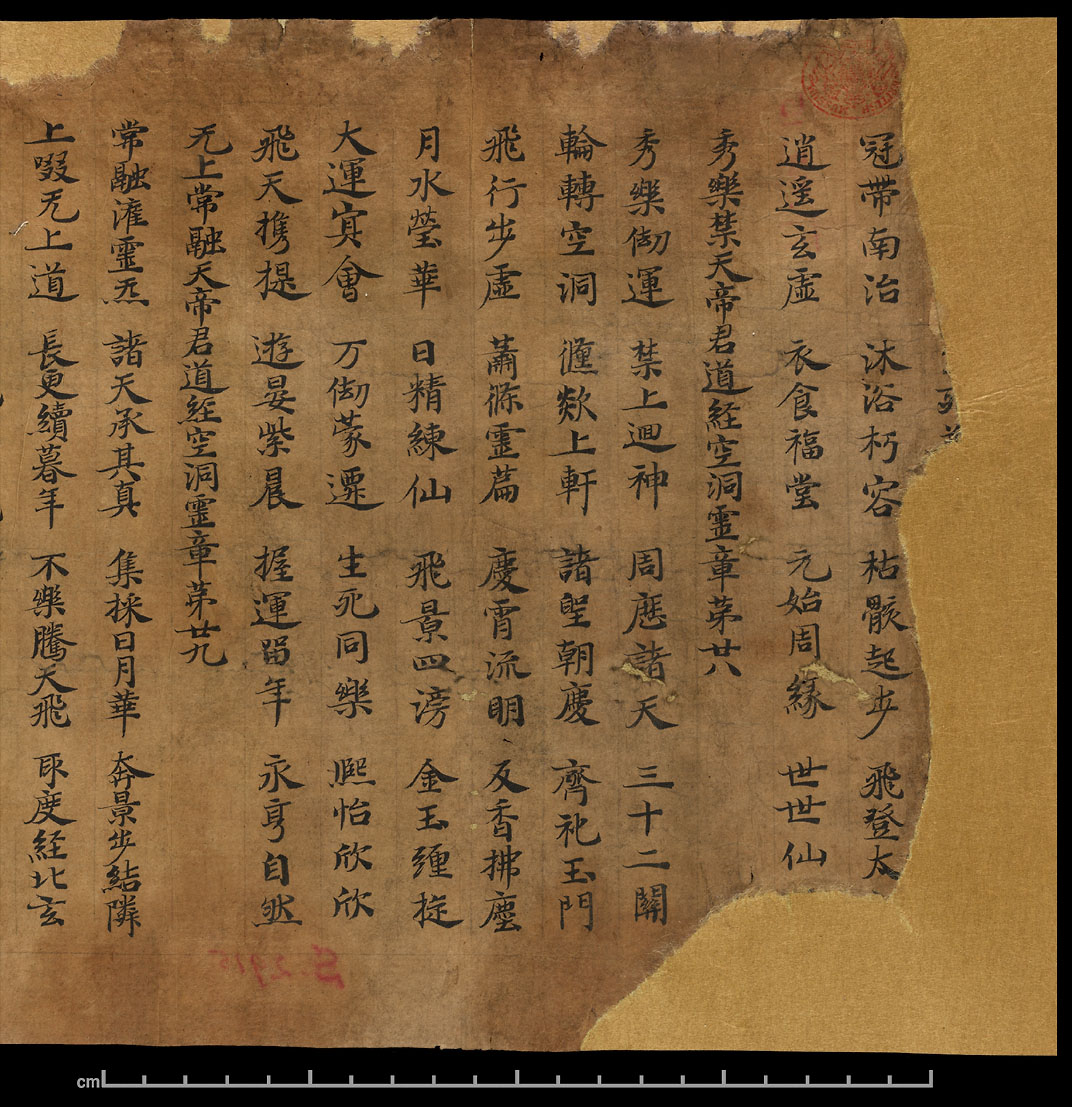 冠帶南治 沐浴朽容 枯骸起步 飛登太
逍遥玄虛 衣食福堂 元始周緣 世世仙
秀樂禁天帝君道経空洞靈章第廿八
秀樂仞運 禁上迴神 周歷諸天 三十二關
輪轉空洞 歘上軒 諸聖朝慶 齊礼玉門
飛行步虛 蕭條靈篇 慶霄流明 反香拂塵
月水瑩華 日精練仙 飛景四滂 金玉纏挺
大運冥會 万仞蒙遷 生死同樂 熙怡欣欣
飛天携提 遊晏紫晨 握運留年 永享自然
无上常融天帝君道経空洞靈章第廿九
常融灌靈炁 諸天承其真 集採日月華 奔景步結隣
上啜无上道 長更續暮年 不樂騰天飛 耴度経北玄
S.2915